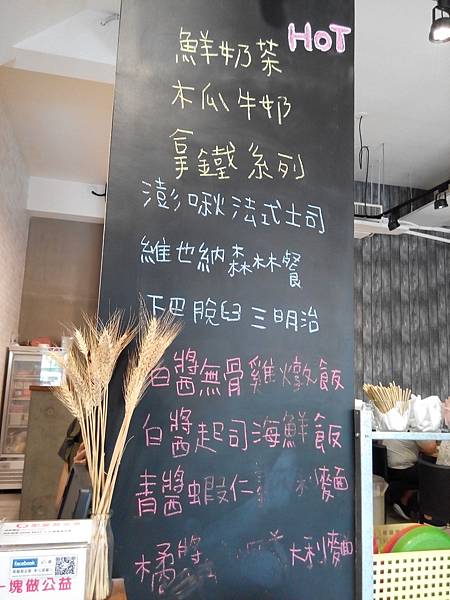 HOT
鮮奶茶
木瓜牛奶
拿鐵系列
澎啾法式土司
維也納森林餐
下巴脫臼三明治
白醬無骨雞燉飯
白醬起司海鮮飯
青醬蝦仁 麵
橘醬 大利麵
facebook
一塊做公益